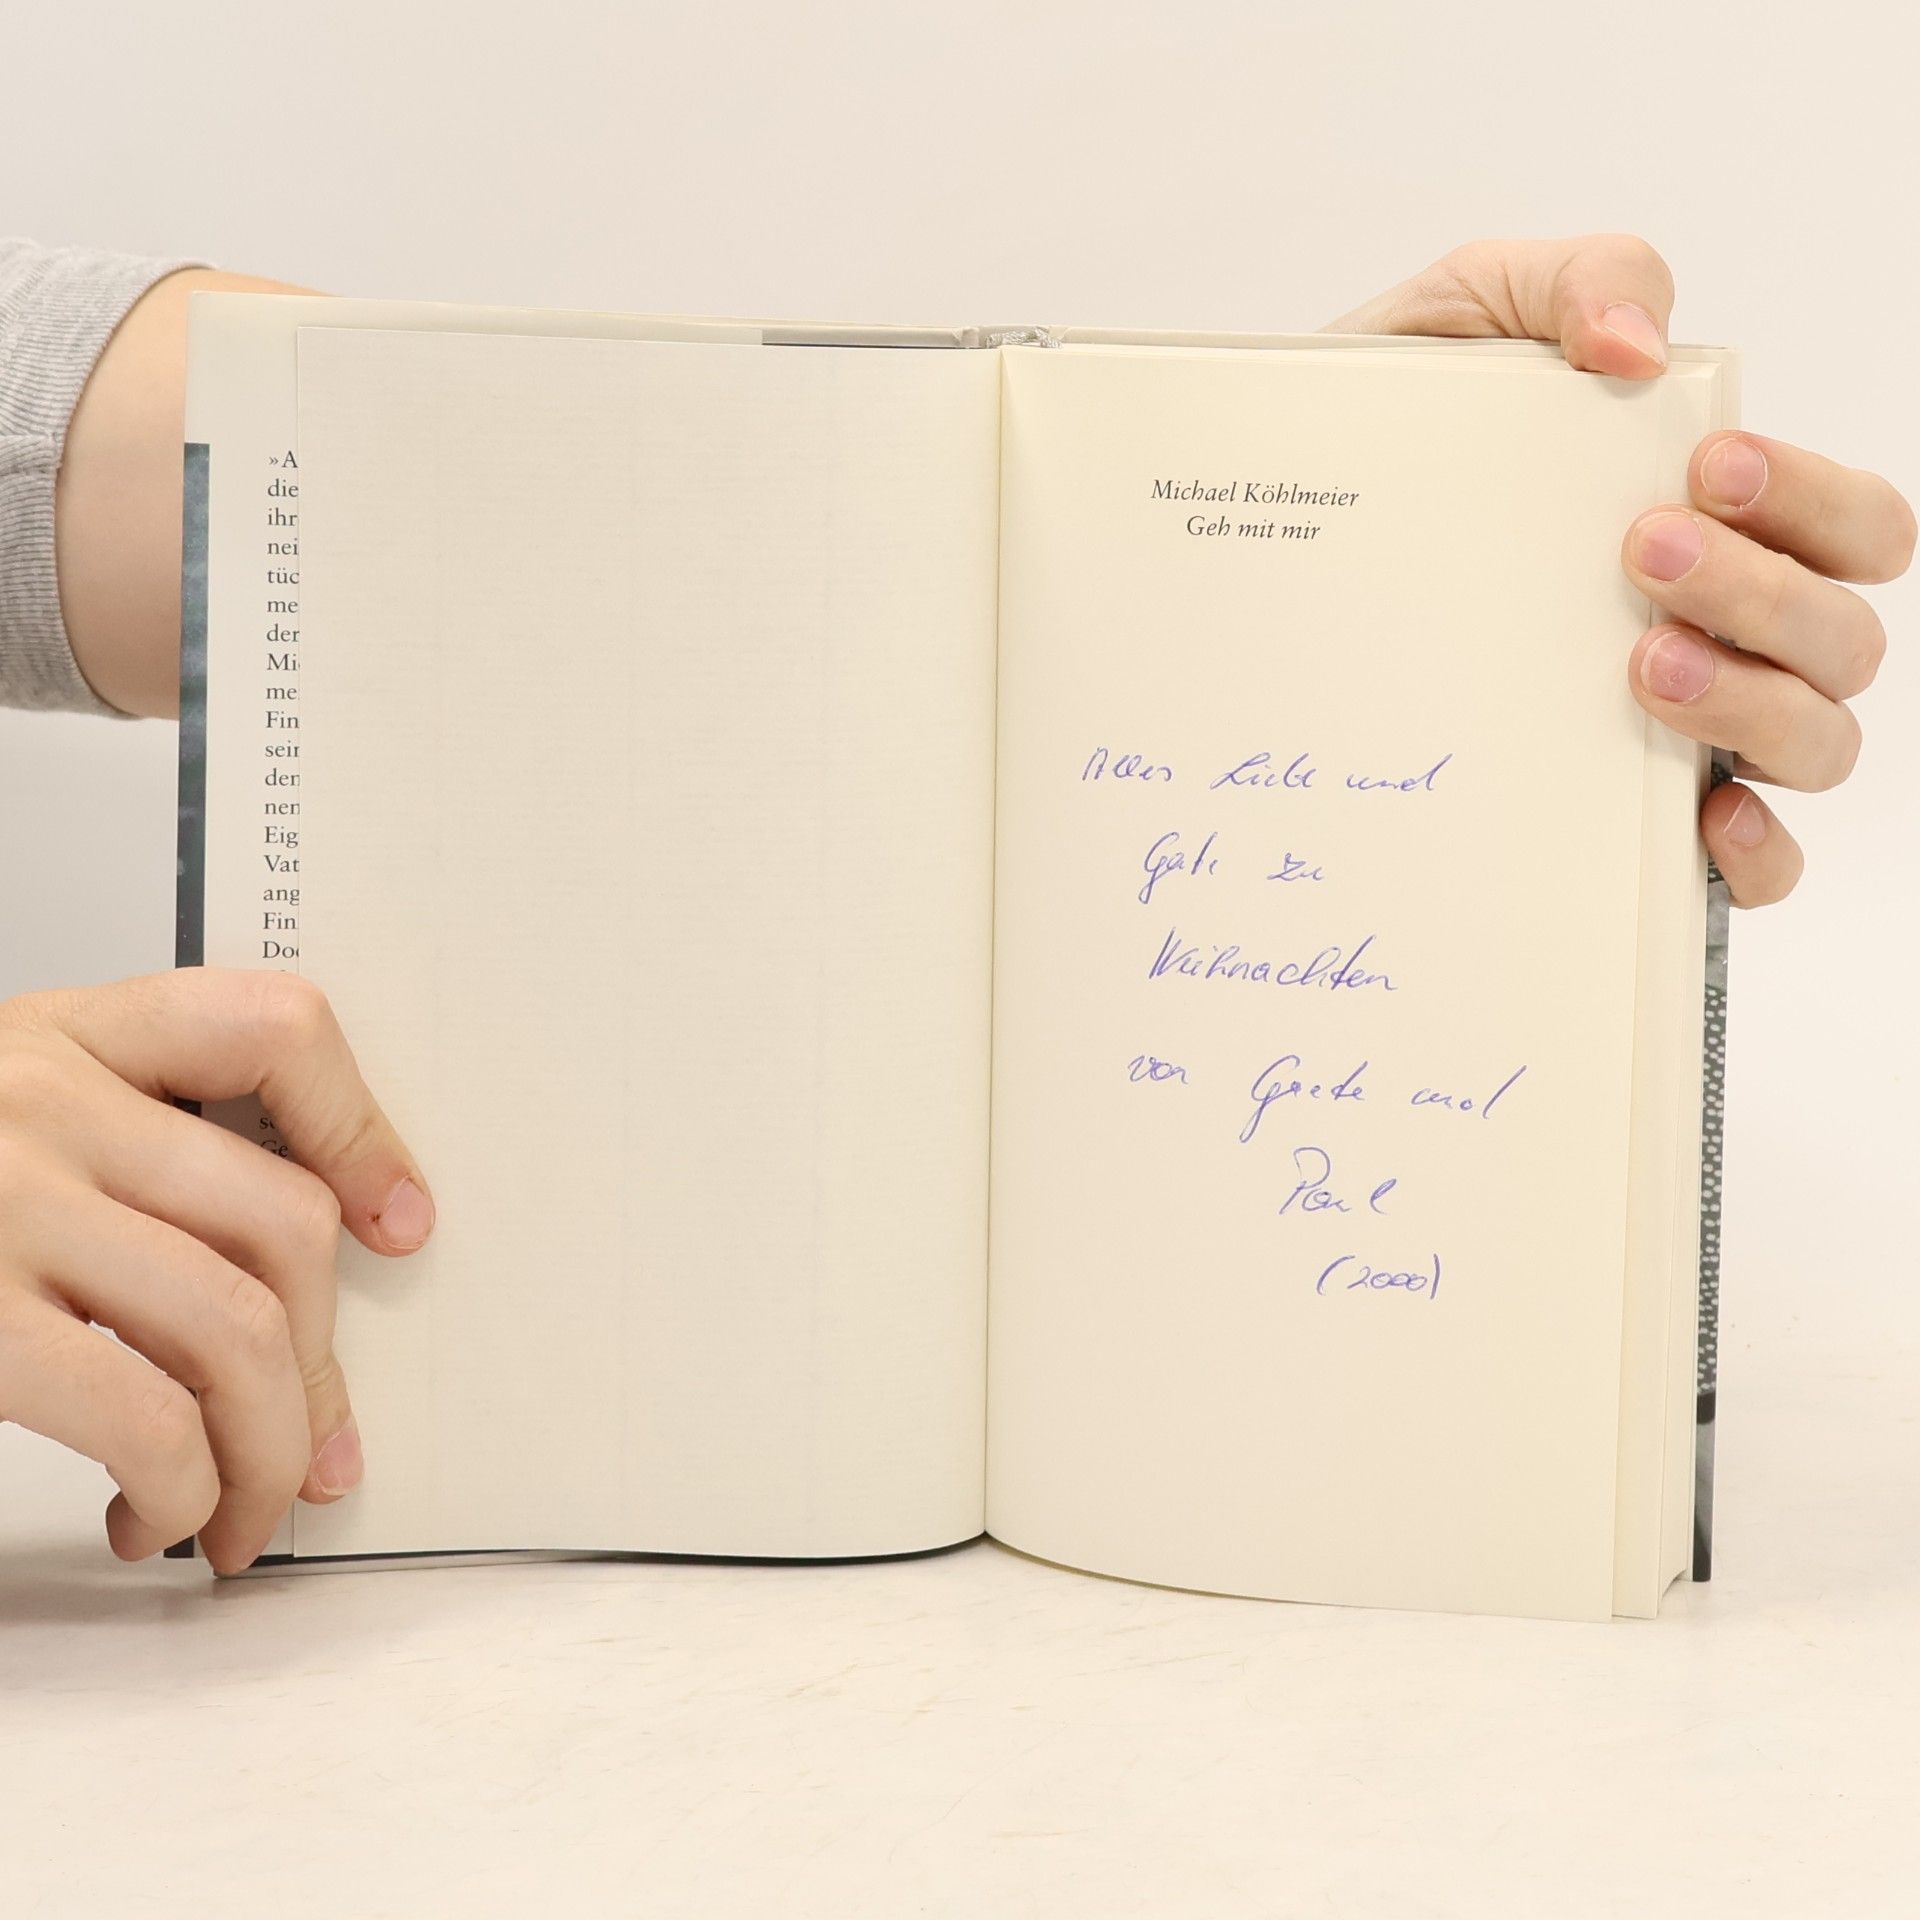 »A
die
ihr
nei
tüc
me
der
Mi
me
Fin
sein
den
nen
Eig
Vat
ang
Fin
Doc
Ge
Michael Köhlmeier
Geh mit mir
Alles Liebe und
Gute zu
Weihnachten
von Grete und
Paul
(2000)